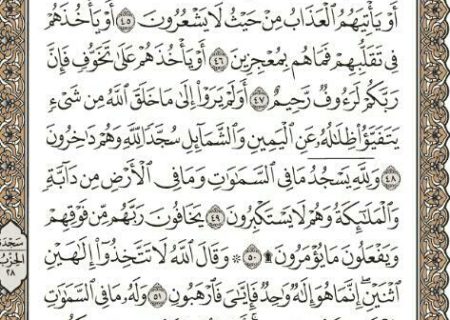 أَوْ يَأْتِيَهُمُ ٱلْعَذَابُ مِنْ حَيْثُ لَا يَشْعُرُونَ ٤٥ أَوْ يَأْخُذَهُمْ
فِى تَقَلُّبِهِمْ فَمَا هُم بِمُعْجِزِينَ ٤٦ أَوْ يَأْخُذَهُمْ عَلَىٰ تَخَوُّفٍ فَإِنَّ
رَبَّكُمْ لَرَءُوفٌ رَّحِيمٌ ٤٧ أَوَلَمْ يَرَوْا۟ إِلَىٰ مَا خَلَقَ ٱللَّهُ مِن شَىْءٍ
يَتَفَيَّؤُا۟ ظِلَٰلُهُۥ عَنِ ٱلْيَمِينِ وَٱلشَّمَآئِلِ سُجَّدًا لِّلَّهِ وَهُمْ دَٰخِرُونَ
٤٨ وَلِلَّهِ يَسْجُدُ مَا فِى ٱلسَّمَٰوَٰتِ وَمَا فِى ٱلْأَرْضِ مِن دَآبَّةٍ
وَٱلْمَلَٰٓئِكَةُ وَهُمْ لَا يَسْتَكْبِرُونَ ٤٩ يَخَافُونَ رَبَّهُم مِّن فَوْقِهِمْ
وَيَفْعَلُونَ مَا يُؤْمَرُونَ ۩ ٥٠ ۞ وَقَالَ ٱللَّهُ لَا تَتَّخِذُوٓا۟ إِلَٰهَيْنِ
ٱثْنَيْنِ ۖ إِنَّمَا هُوَ إِلَٰهٌ وَٰحِدٌ ۖ فَإِيَّٰىَ فَٱرْهَبُونِ ٥١ وَلَهُۥ مَا فِى ٱلسَّمَٰوَٰتِ
سَجْدَة
الحِزْب
٢٨